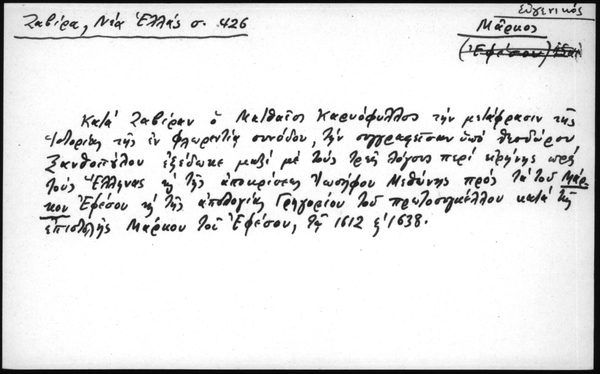 Ζαβίρα, Νέα Ἑλλάς σ. 426
εὐγενικός
Μᾶρκος
(Ἐφέσου)
Κατά Ζαβίραν ὁ Ματθαῖος Καρυόφυλλος τήν μετάφρασιν τῆς
Ἱστορίας τῆς ἐν Φλωρεντίᾳ συνόδου, τήν συγγραφεῖσαν ὑπό Θεοδώρου
Ξανθοπούλου ἐξέδωκε μαζί με τούς τρεῖς λόγους περί εἰρήνης πρός
τούς Ἕλληνας κ τῆς ἀποκρίσεως Ἰωσήφου Μεθώνης πρός τά τοῦ Μάρ-
κου Ἐφέσου κ τῆς ἀπολογίας Γρηγορίου τοῦ πρωτοσυγκέλλου κατά τῆς
ἐπιστολῆς Μάρκου τοῦ Ἐφέσου, τῷ 1612 κ 1638.